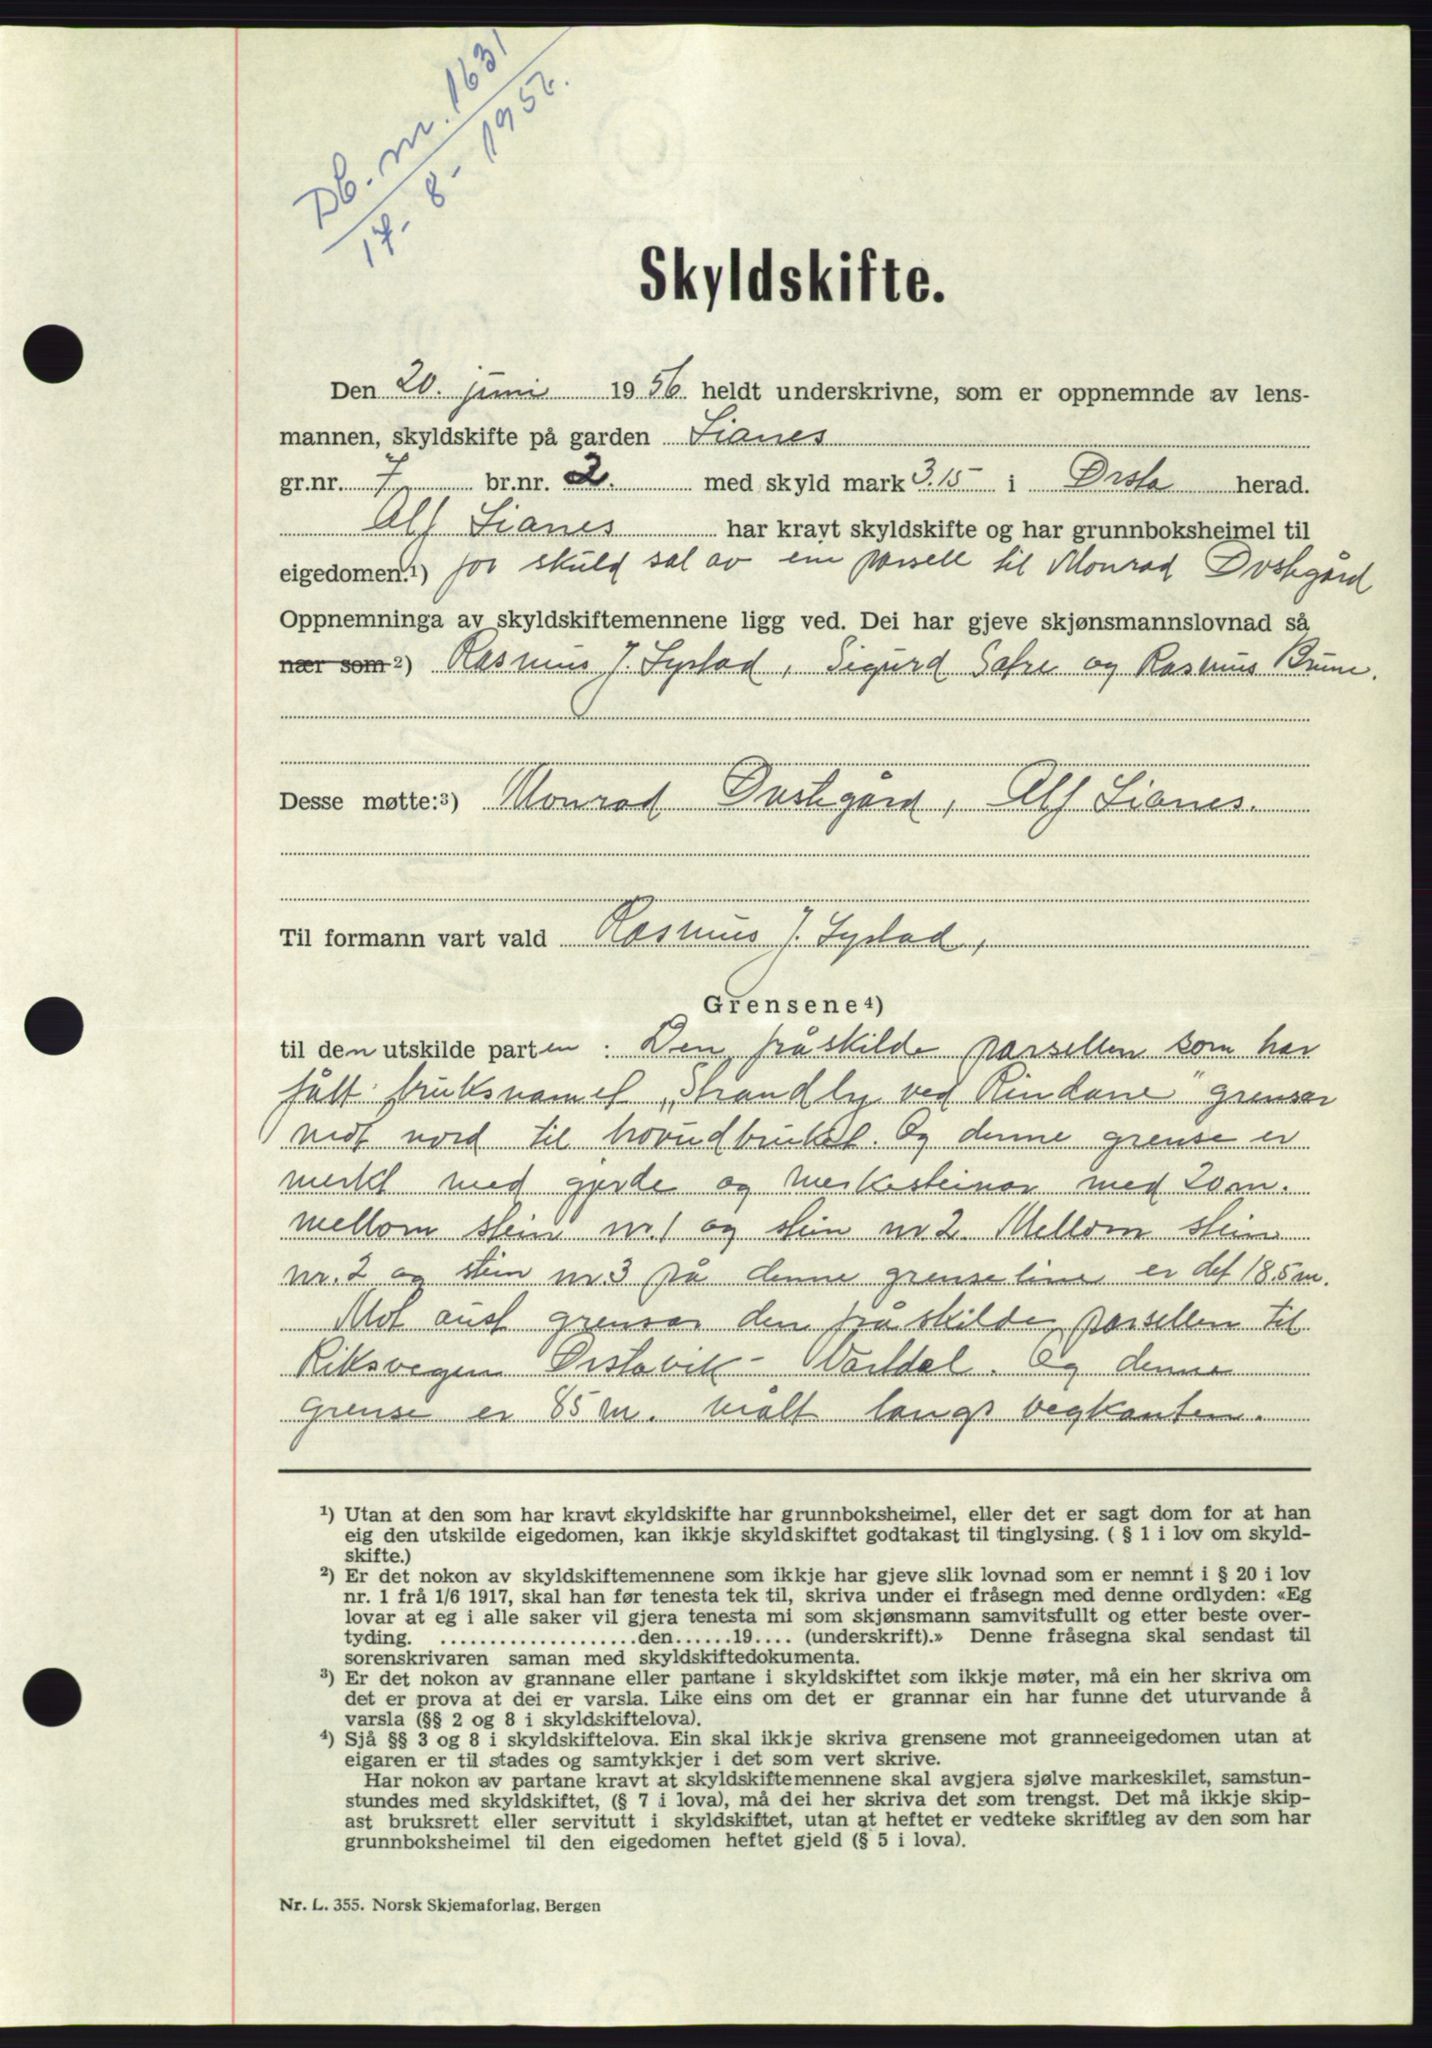 Db. nr. 1631
17-8-1956.
Skyldskifte.
Den 20. juni 1956 heldt underskrivne, som er oppnemnde av lens-
mannen, skyldskifte på garden Lianes
gr.nr. 7 br.nr. 2. med skyld mark 3.15 i Ørsta herad.
Alf Lianes har kravt skyldskifte og har grunnboksheimel til
eigedomen.1) for skuld sal av ein parsell til Monrad Øvstegård
Oppnemninga av skyldskiftemennene ligg ved. Dei har gjeve skjønsmannslovnad så
nær som 2) Rasmus J. Systad, Sigurd Sætre og Rasmus Brune.
Desse møtte:3) Monrad Øvstegård, Alf Lianes.
Til formann vart vald Rasmus J. Systad,
Grensene4)
til den utskilde parten: Den fråskilde parsellen som har
fått bruksnamet „Strandby ved Rindane" grensar
mot nord til hovudbruket. Og denne grense er
merkt med gjerde og merkesteinar med 20 m.
mellom stein nr. 1 og stein nr 2. Mellom stein
nr. 2 og stein nr. 3 på denne grenseline er det 18.5 m.
Mot aust grensar den fråskilde parsellen til
Riksvegen Ørstavik - Vartdal. Og denne
grense er 85 m. målt langs vegkanten.
1) Utan at den som har kravt skyldskifte har grunnboksheimel, eller det er sagt dom for at han
eig den utskilde eigedomen, kan ikkje skyldskiftet godtakast til tinglysing. ( § 1 i lov om skyld-
skifte.)
2) Er det nokon av skyldskiftemennene som ikkje har gjeve slik lovnad som er nemnt i § 20 i lov
nr. 1 frå 1/6 1917, skal han før tenesta tek til, skriva under ei fråsegn med denne ordlyden: «Eg
lovar at eg i alle saker vil gjera tenesta mi som skjønsmann samvitsfullt og etter beste over-
tyding. ....................den......19.... (underskrift).» Denne fråsegna skal sendast til
sorenskrivaren saman med skyldskiftedokumenta.
3) Er det nokon av grannane eller partane i skyldskiftet som ikkje møter, må ein her skriva om
det er prova at dei er varsla. Like eins om det er grannar ein har funne det uturvande å
varsla (§§ 2 og 8 i skyldskiftelova).
4) Sjå §§ 3 og 8 i skyldskiftelova. Ein skal ikkje skriva grensene mot granneeigedomen utan at
eigaren er til stades og samtykkjer i det som vert skrive.
Har nokon av partane kravt at skyldskiftemennene skal avgjera sjølve markeskilet, samstun-
stundes med skyldskiftet, (§ 7 i lova), må dei her skriva det som trengst. Det må ikkje skip-
ast bruksrett eller servitutt i skyldskiftet, utan at heftet er vedteke skriftleg av den som har
grunnboksheimel til den eigedomen heftet gjeld (§ 5 i lova).
Nr. L. 355. Norsk Skjemaforlag, Bergen